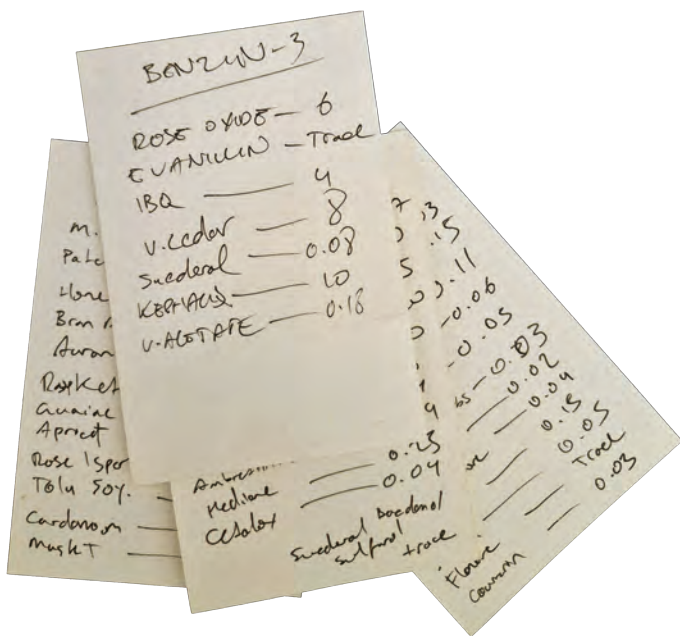 BENZUN-3
ROSE OXIDE - 6
EVANILLIN - Trace
IBQ — 4
V.cedar — 8
Suederal — 0.08
KEPHALIS — 10
V-ACETATE — 0.18
M.
Patc
Hone
Bran
Auran
RaspKet
Guaiac
Apricot
Rose Isper
Tolu 50%.
Cardamom —
Musk T —
— 0.25
Hedione — 0.04
Cetalox —
Suederal
trace
13
.15
0.11
-0.06
-0.05
-0.03
— 0.02
— 0.04
— 0.15
— 0.05
— Trace
Coumarin — 0.03